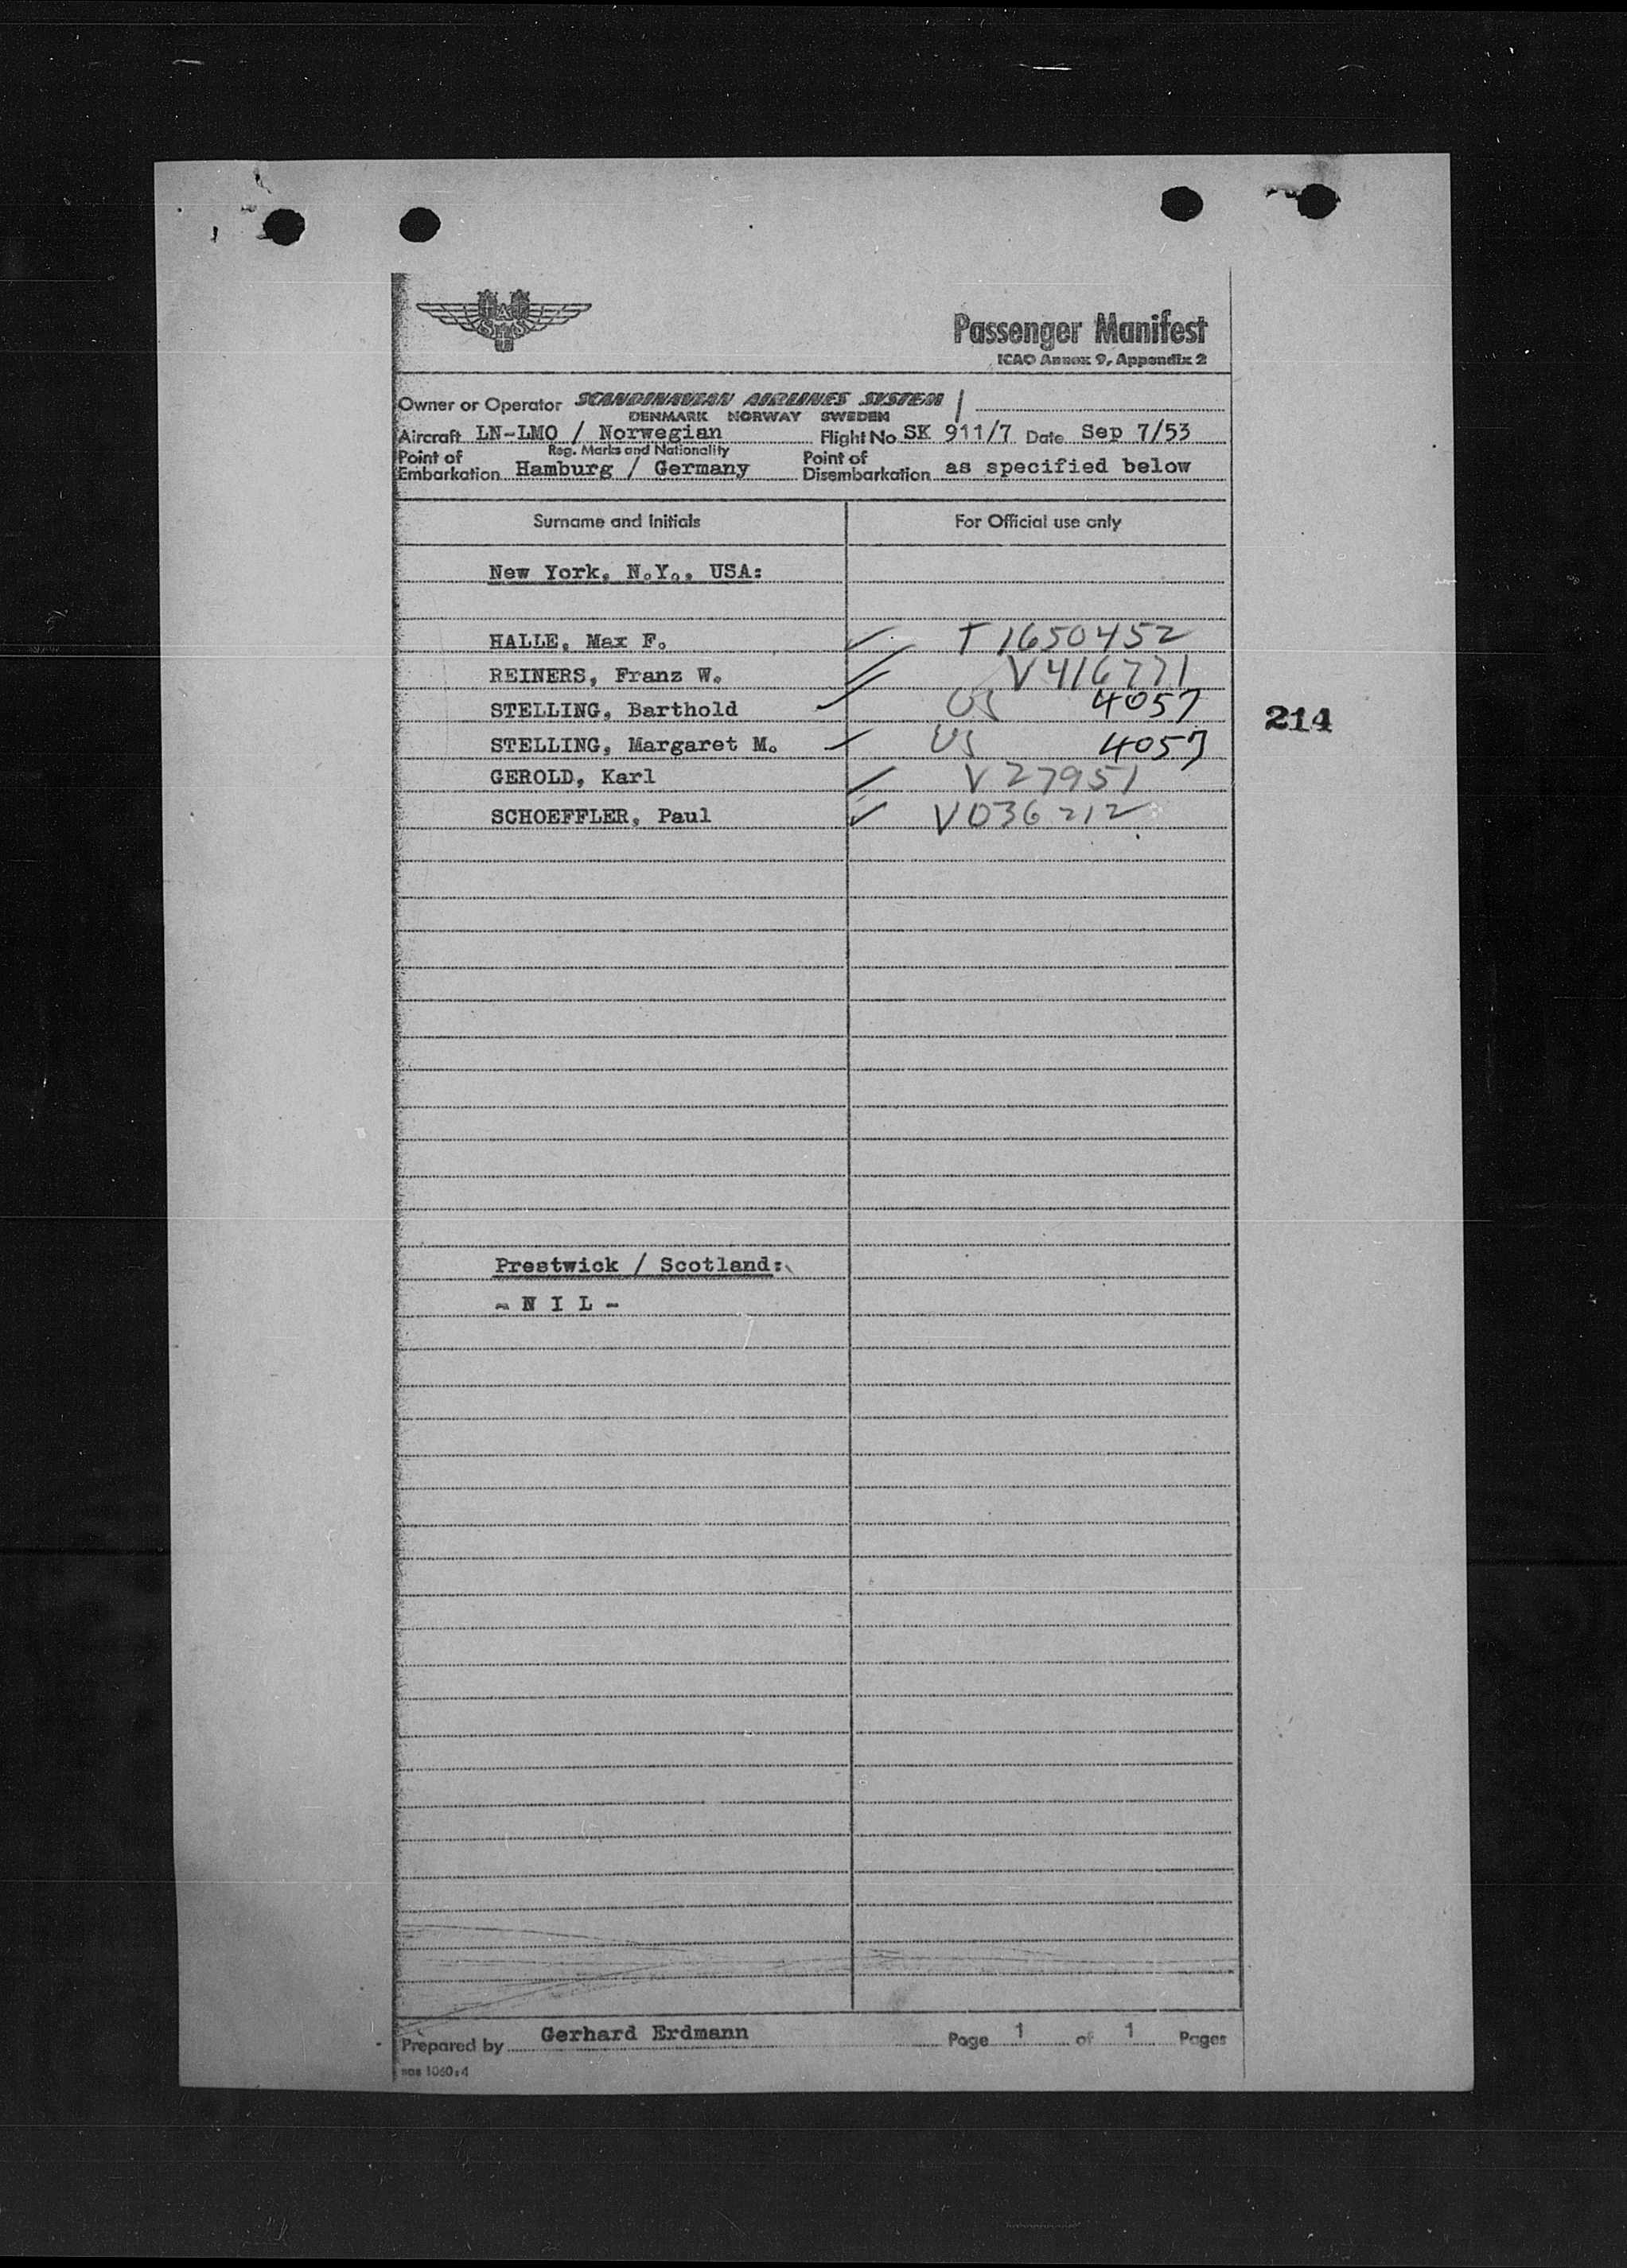 SAS
Passenger Manifest
ICAO Annex 9, Appendix 2
Owner or Operator SCANDINAVIAN AIRLINES SYSTEM
DENMARK NORWAY SWEDEN
Aircraft LN-LMO / Norwegian Flight No SK 911/7 Date Sep 7/53
Reg. Marks and Nationality
Point of Embarkation Hamburg / Germany Point of Disembarkation as specified below
Surname and Initials For Official use only
New York, N.Y., USA:
HALLE, Max F. T 1650452
REINERS, Franz W. V 416771
STELLING, Barthold US 4057
214
STELLING, Margaret M. US 4057
GEROLD, Karl V 27951
SCHOEFFLER, Paul V 036212
Prestwick / Scotland:
- N I L -
Prepared by Gerhard Erdmann Page 1 of 1 Pages
1060:4